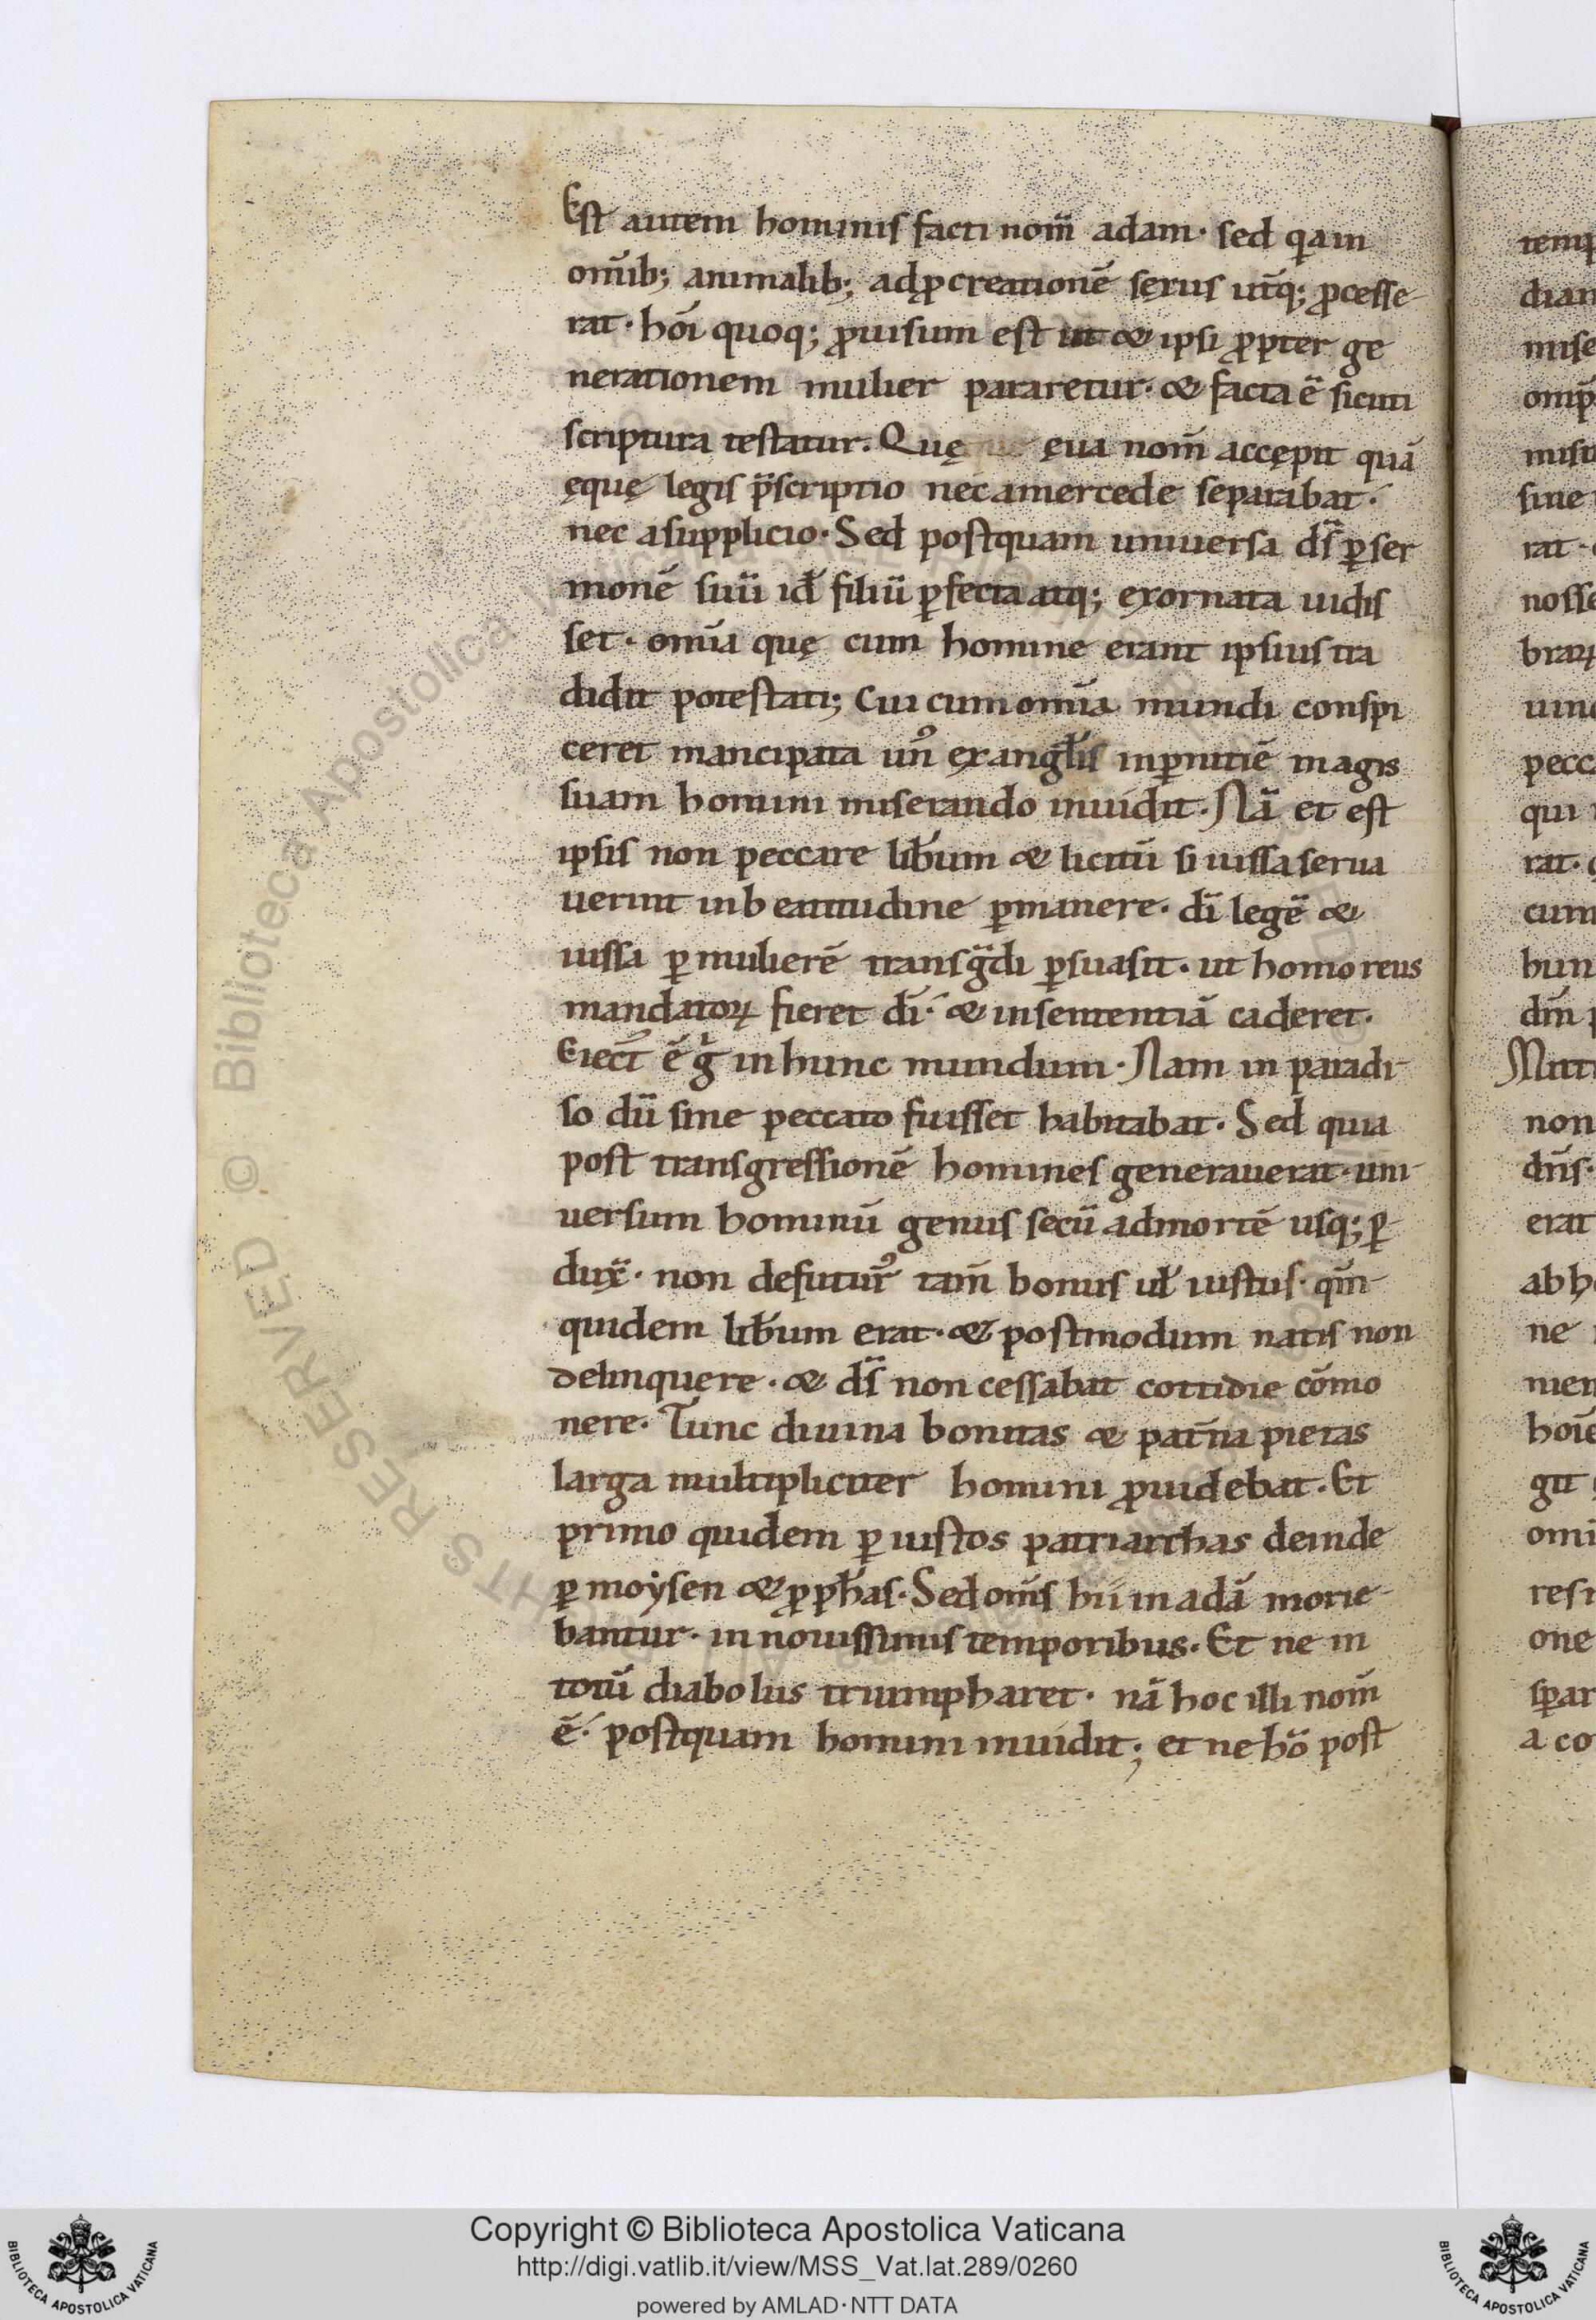 Est autem hominis facti nom̄ adam· sed q̄am
om̄ib; animalib; adꝓcreationē sexus utq̄; ꝓcesse-
rat· hōi quoq; ꝓuisum est ut & ipsi ꝓpter ge
nerationem mulier pararetur· & facta ē sicuti
scriptura testatur. Quę ęua nom̄ accępit quā
ęquę legis p̄scriptio nec amercede separabat·
nec asupplicio· Sed postquam uniuersa ds̄ ꝑ ser
monē suū id̄ filiū ꝑfecta atq; exornata uidis
set· om̄ia quę cum homine erant ipsius tra
didit potestati; Cui cum om̄ia mundi conspi
ceret mancipata un᾽ ex angl̄is inꝑnitiē magis
suam homini miserando inuidit· Nā et est
ipsis non peccare lib̄um & licitū si iussa serua
uerint in beatitudine ꝑmanere· dī legē &
iussa ꝑ mulierē transgdi ꝑsuasit· ut homo reus
mandatoꝝ fieret dī· & insententiā caderet·
Eiect᾽ ē g̊ in hunc mundum· Nam in paradi-
so dū sine peccato fuisset habitabat· Sed quia
post transgressionē homines generauerat· uni-
uersum hominū genus secū admortē usq; ꝑ-
dux̄· non defutur᾽ tam̄ bonus ul̄ iustus· qm̄-
quidem lib̄um erat· & postmodum natis non
delinquere· & ds̄ non cessabat cottidie cōmo
nere· Tunc diuina bonitas & pat̄na pietas
larga multipliciter homini ꝓuidebat· Et
primo quidem ꝑ iustos patriarchas deinde
ꝑ moẏsen & ꝓph̄as· Sed om̄s hii in adā morie-
bantur· in nouissimis temporibus· Et ne in
totū diabolus triumpharet· nā hoc illi nom̄
ē· postquam homini inuidit; et ne hō post
© Biblioteca Apostolica Vaticana
ALL RIGHTS RESERVED
Copyright © Biblioteca Apostolica Vaticana
http://digi.vatlib.it/view/MSS_Vat.lat.289/0260
powered by AMLAD·NTT DATA
BIBLIOTECA APOSTOLICA VATICANA
BIBLIOTECA APOSTOLICA VATICANA